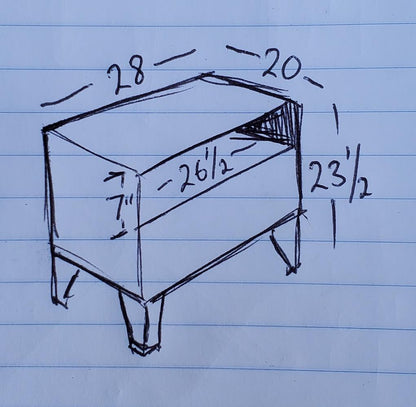 28
20
26 1/2
7"
23 1/2